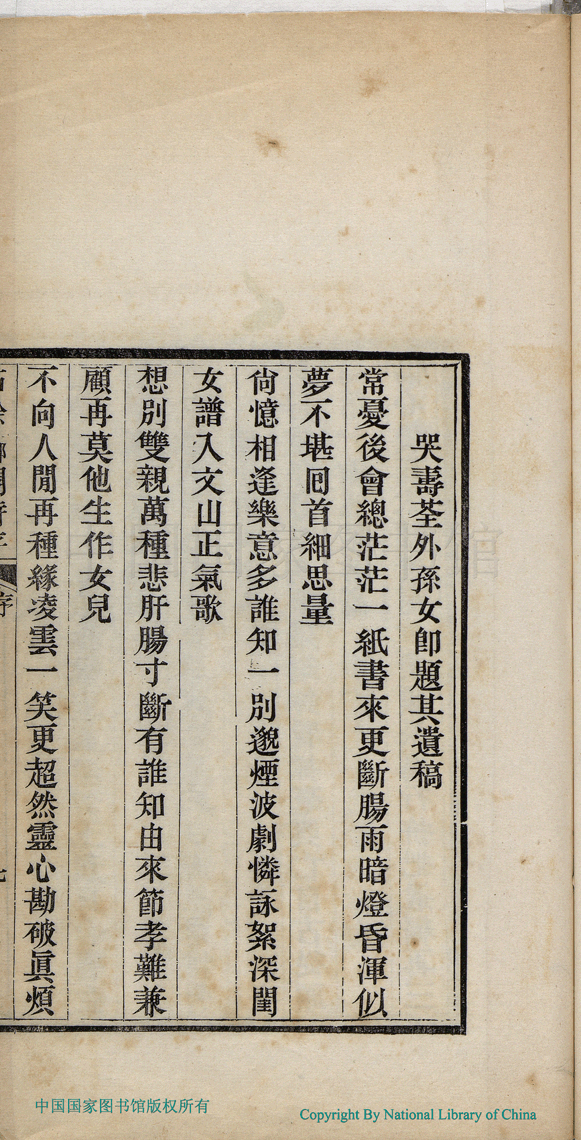 哭壽荃外孫女卽題其遺稿
常憂後會總茫茫一紙書來更斷腸雨暗燈昏渾似
夢不堪囘首細思量
尙憶相逢樂意多誰知一別邈煙波劇憐詠絮深閨
女譜入文山正氣歌
想別雙親萬種悲肝腸寸斷有誰知由來節孝難兼
顧再莫他生作女兒
不向人閒再種緣凌雲一笑更超然靈心勘破眞煩
序
七
中国国家图书馆版权所有
Copyright By National Library of China